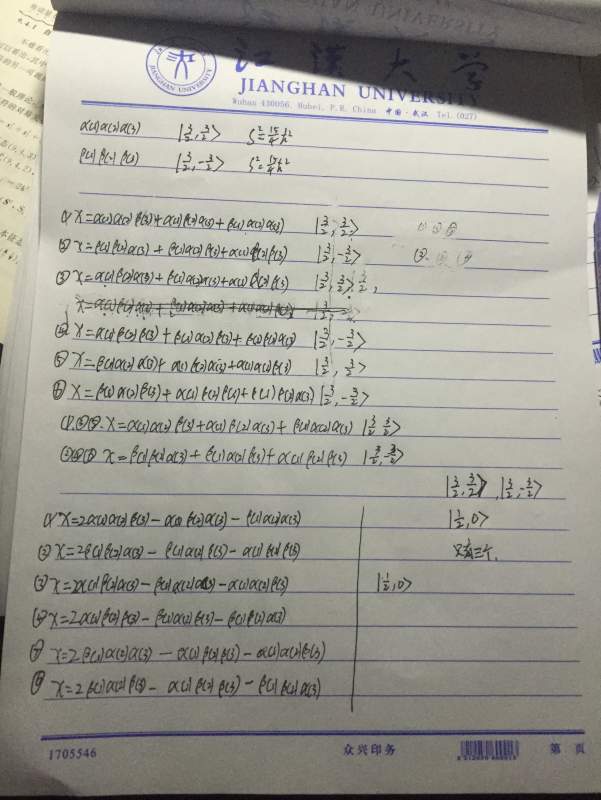 江汉大学
JIANGHAN UNIVERSITY
Wuhan 430056, Hubei, P.R. China 中国·武汉 Tel.(027)
α(1)α(2)α(3) |3/2, 3/2> S²=15/4ħ²
β(1)β(2)β(3) |3/2, -3/2> S²=15/4ħ²
(1) χ=α(1)α(2)β(3)+α(1)β(2)α(3)+β(1)α(2)α(3) |3/2, 3/2>
② χ=β(1)β(2)α(3)+β(1)α(2)β(3)+α(1)β(2)β(3) |3/2, -3/2>
③ χ=α(1)β(2)α(3)+β(1)α(2)α(3)+α(1)α(2)β(3) |3/2, 3/2>
④ χ=α(1)β(2)β(3)+β(1)α(2)β(3)+β(1)β(2)α(3) |3/2, -3/2>
⑤ χ=β(1)α(2)α(3)+α(1)β(2)α(3)+α(1)α(2)β(3) |3/2, 3/2>
⑥ χ=β(1)α(2)β(3)+α(1)β(2)β(3)+β(1)β(2)α(3) |3/2, -3/2>
①③⑤ χ=α(1)α(2)β(3)+α(1)β(2)α(3)+β(1)α(2)α(3) |3/2, 3/2>
②④⑥ χ=β(1)β(2)α(3)+β(1)α(2)β(3)+α(1)β(2)β(3) |3/2, -3/2>
|3/2, 3/2>, |3/2, -3/2>
(1) χ=2α(1)α(2)β(3)-α(1)β(2)α(3)-β(1)α(2)α(3) |1/2, 0>
② χ=2β(1)β(2)α(3)-β(1)α(2)β(3)-α(1)β(2)β(3)
③ χ=2α(1)β(2)α(3)-β(1)α(2)α(3)-α(1)α(2)β(3) |1/2, 0>
④ χ=2α(1)β(2)β(3)-β(1)α(2)β(3)-β(1)β(2)α(3)
⑤ χ=2β(1)α(2)α(3)-α(1)β(2)β(3)-α(1)α(2)β(3)
⑥ χ=2β(1)α(2)β(3)-α(1)β(2)β(3)-β(1)β(2)α(3)
1705546 众兴印务 第 页